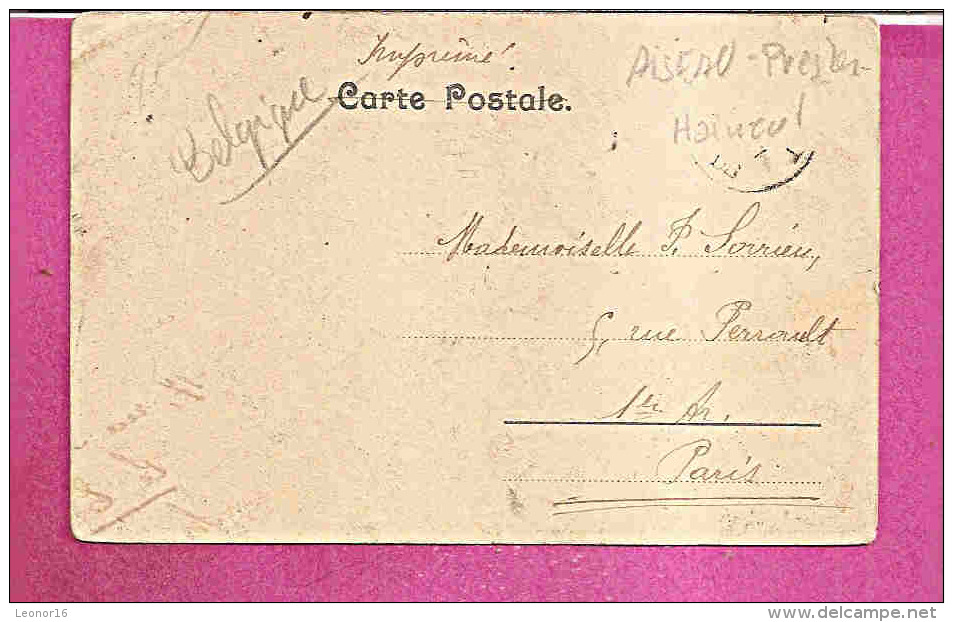 Imprimé
Belgique
Carte Postale.
AISEAU - Presles -
Hainaut
Mademoiselle P. Sorrieu,
5, rue Perrault
1er Ar.
Paris
Leonor16
www.delcampe.net